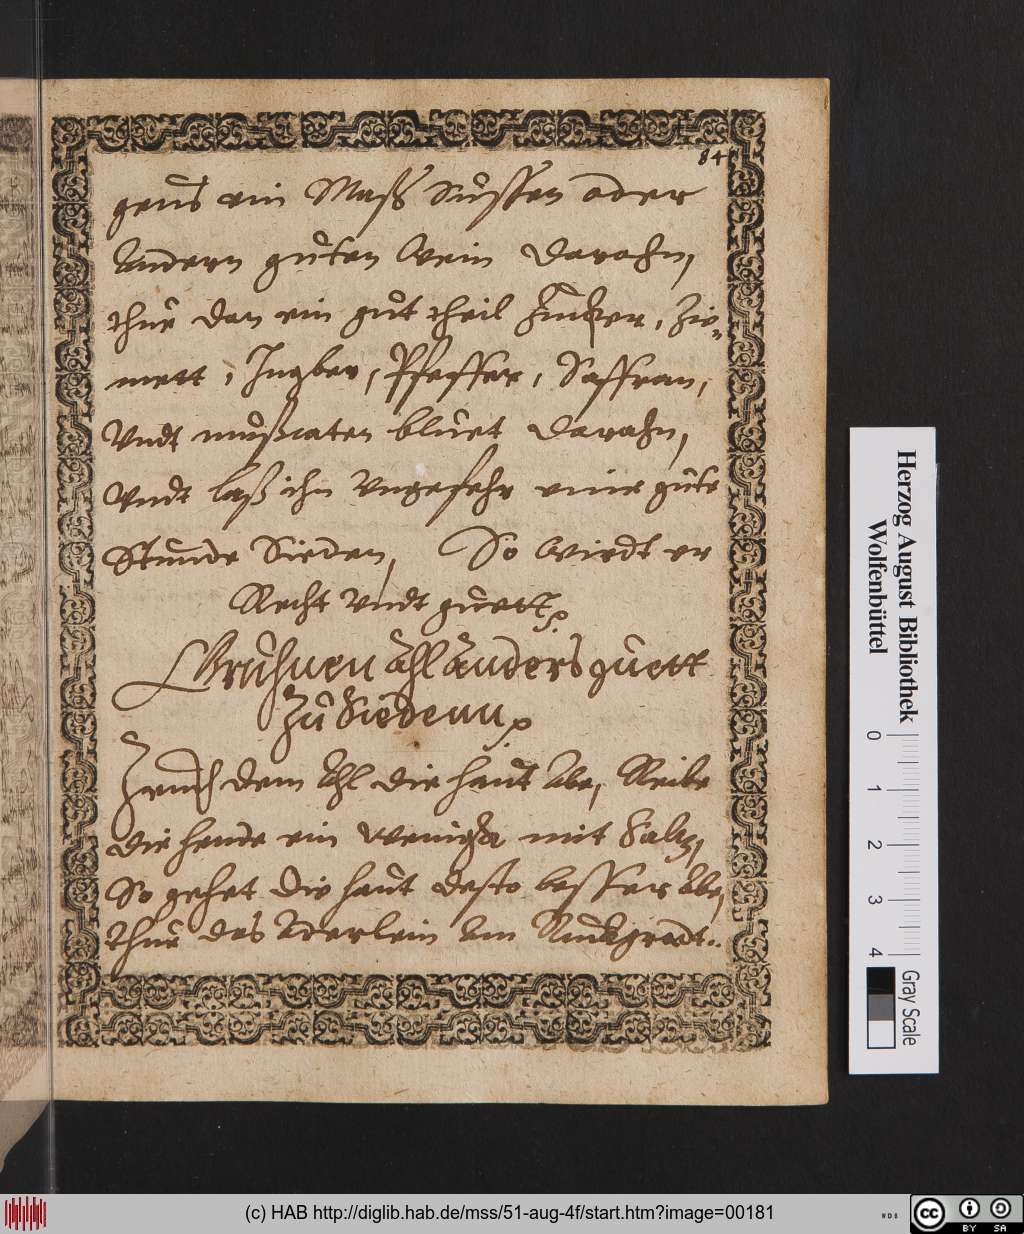 84
geüs ein Maß Süssen oder
andern gůten Wein darahn,
thue dan ein gůt theil Zucker, Zim=
mett, Ingber, Pfeffer, Saffran,
Undt mußcaten blüet darahn,
Undt laß ihn Ungefehr eine gůte
Stunde Sieden, So wirdt er
Recht Undt guett
Gruhnen ahl anders guett
Zů Siedenn
Zeuch dem ahl die haut abe, Reibe
die hende ein wenigk mit Saltz,
So gehet die haut desto besser abe,
thue das aderlein am Ruckgradt
Herzog August Bibliothek
Wolfenbüttel
0 1 2 3 4
Gray Scale
(c) HAB http://diglib.hab.de/mss/51-aug-4f/start.htm?image=00181
WDB
cc
BY SA